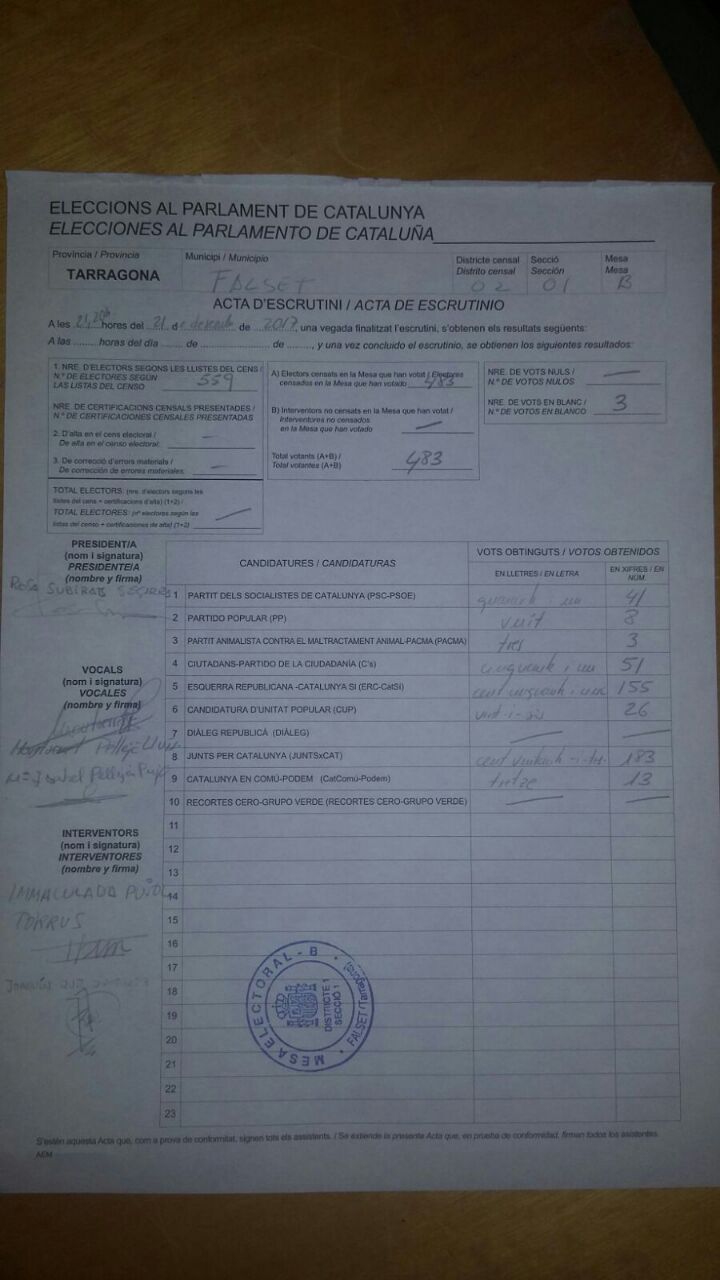 ELECCIONS AL PARLAMENT DE CATALUNYA
ELECCIONES AL PARLAMENTO DE CATALUÑA
Provincia / Provincia
TARRAGONA
Municipi / Municipio
FALSET
Districte censal
Distrito censal
02
Secció
Sección
01
Mesa
Mesa
B
ACTA D'ESCRUTINI / ACTA DE ESCRUTINIO
A les hores del 21 de desembre de 2017, una vegada finalitzat l'escrutini, s'obtenen els resultats següents:
A las ........ horas del día ....... de .................... de ........, y una vez concluido el escrutinio, se obtienen los siguientes resultados:
1. NRE. D'ELECTORS SEGONS LES LLISTES DEL CENS /
N.º DE ELECTORES SEGÚN
LAS LISTAS DEL CENSO 559
NRE. DE CERTIFICACIONS CENSALS PRESENTADES /
N.º DE CERTIFICACIONES CENSALES PRESENTADAS
2. D'alta en el cens electoral /
De alta en el censo electoral: —
3. De correcció d'errors materials /
De corrección de errores materiales: —
TOTAL ELECTORS: (nre. d'electors segons les
llistes del cens + certificacions d'alta) (1+2) /
TOTAL ELECTORES: (nº electores según las
listas del censo + certificaciones de alta) (1+2) —
A) Electors censats en la Mesa que han votat / Electores
censados en la Mesa que han votado 483
B) Interventors no censats en la Mesa que han votat /
Interventores no censados
en la Mesa que han votado —
Total votants (A+B) /
Total votantes (A+B) 483
NRE. DE VOTS NULS /
N.º DE VOTOS NULOS —
NRE. DE VOTS EN BLANC /
N.º DE VOTOS EN BLANCO 3
PRESIDENT/A
(nom i signatura)
PRESIDENTE/A
(nombre y firma)
ROSA SUBIRATS
VOCALS
(nom i signatura)
VOCALES
(nombre y firma)
Pellejà
Mª Isabel Pellejà
INTERVENTORS
(nom i signatura)
INTERVENTORES
(nombre y firma)
IMMACULADA PUÑOL
TORRUS
CANDIDATURES / CANDIDATURAS
VOTS OBTINGUTS / VOTOS OBTENIDOS
EN LLETRES / EN LETRA
EN XIFRES / EN NÚM.
1 PARTIT DELS SOCIALISTES DE CATALUNYA (PSC-PSOE) quaranta i un 41
2 PARTIDO POPULAR (PP) vuit 8
3 PARTIT ANIMALISTA CONTRA EL MALTRACTAMENT ANIMAL-PACMA (PACMA) tres 3
4 CIUTADANS-PARTIDO DE LA CIUDADANÍA (C's) cinquanta i un 51
5 ESQUERRA REPUBLICANA -CATALUNYA SI (ERC-CatSi) cent 155
6 CANDIDATURA D'UNITAT POPULAR (CUP) vint-i-sis 26
7 DIÀLEG REPUBLICÀ (DIÀLEG) — —
8 JUNTS PER CATALUNYA (JUNTSxCAT) cent vuitanta-i-tres 183
9 CATALUNYA EN COMÚ-PODEM (CatComú-Podem) tretze 13
10 RECORTES CERO-GRUPO VERDE (RECORTES CERO-GRUPO VERDE) — —
11
12
13
14
15
16
17
18
19
20
21
22
23
MESA ELECTORAL - B
DISTRICTE 1
SECCIÓ 1
FALSET (Tarragona)
S'estén aquesta Acta que, com a prova de conformitat, signen tots els assistents. / Se extiende la presente Acta que, en prueba de conformidad, firman todos los asistentes.
AEM